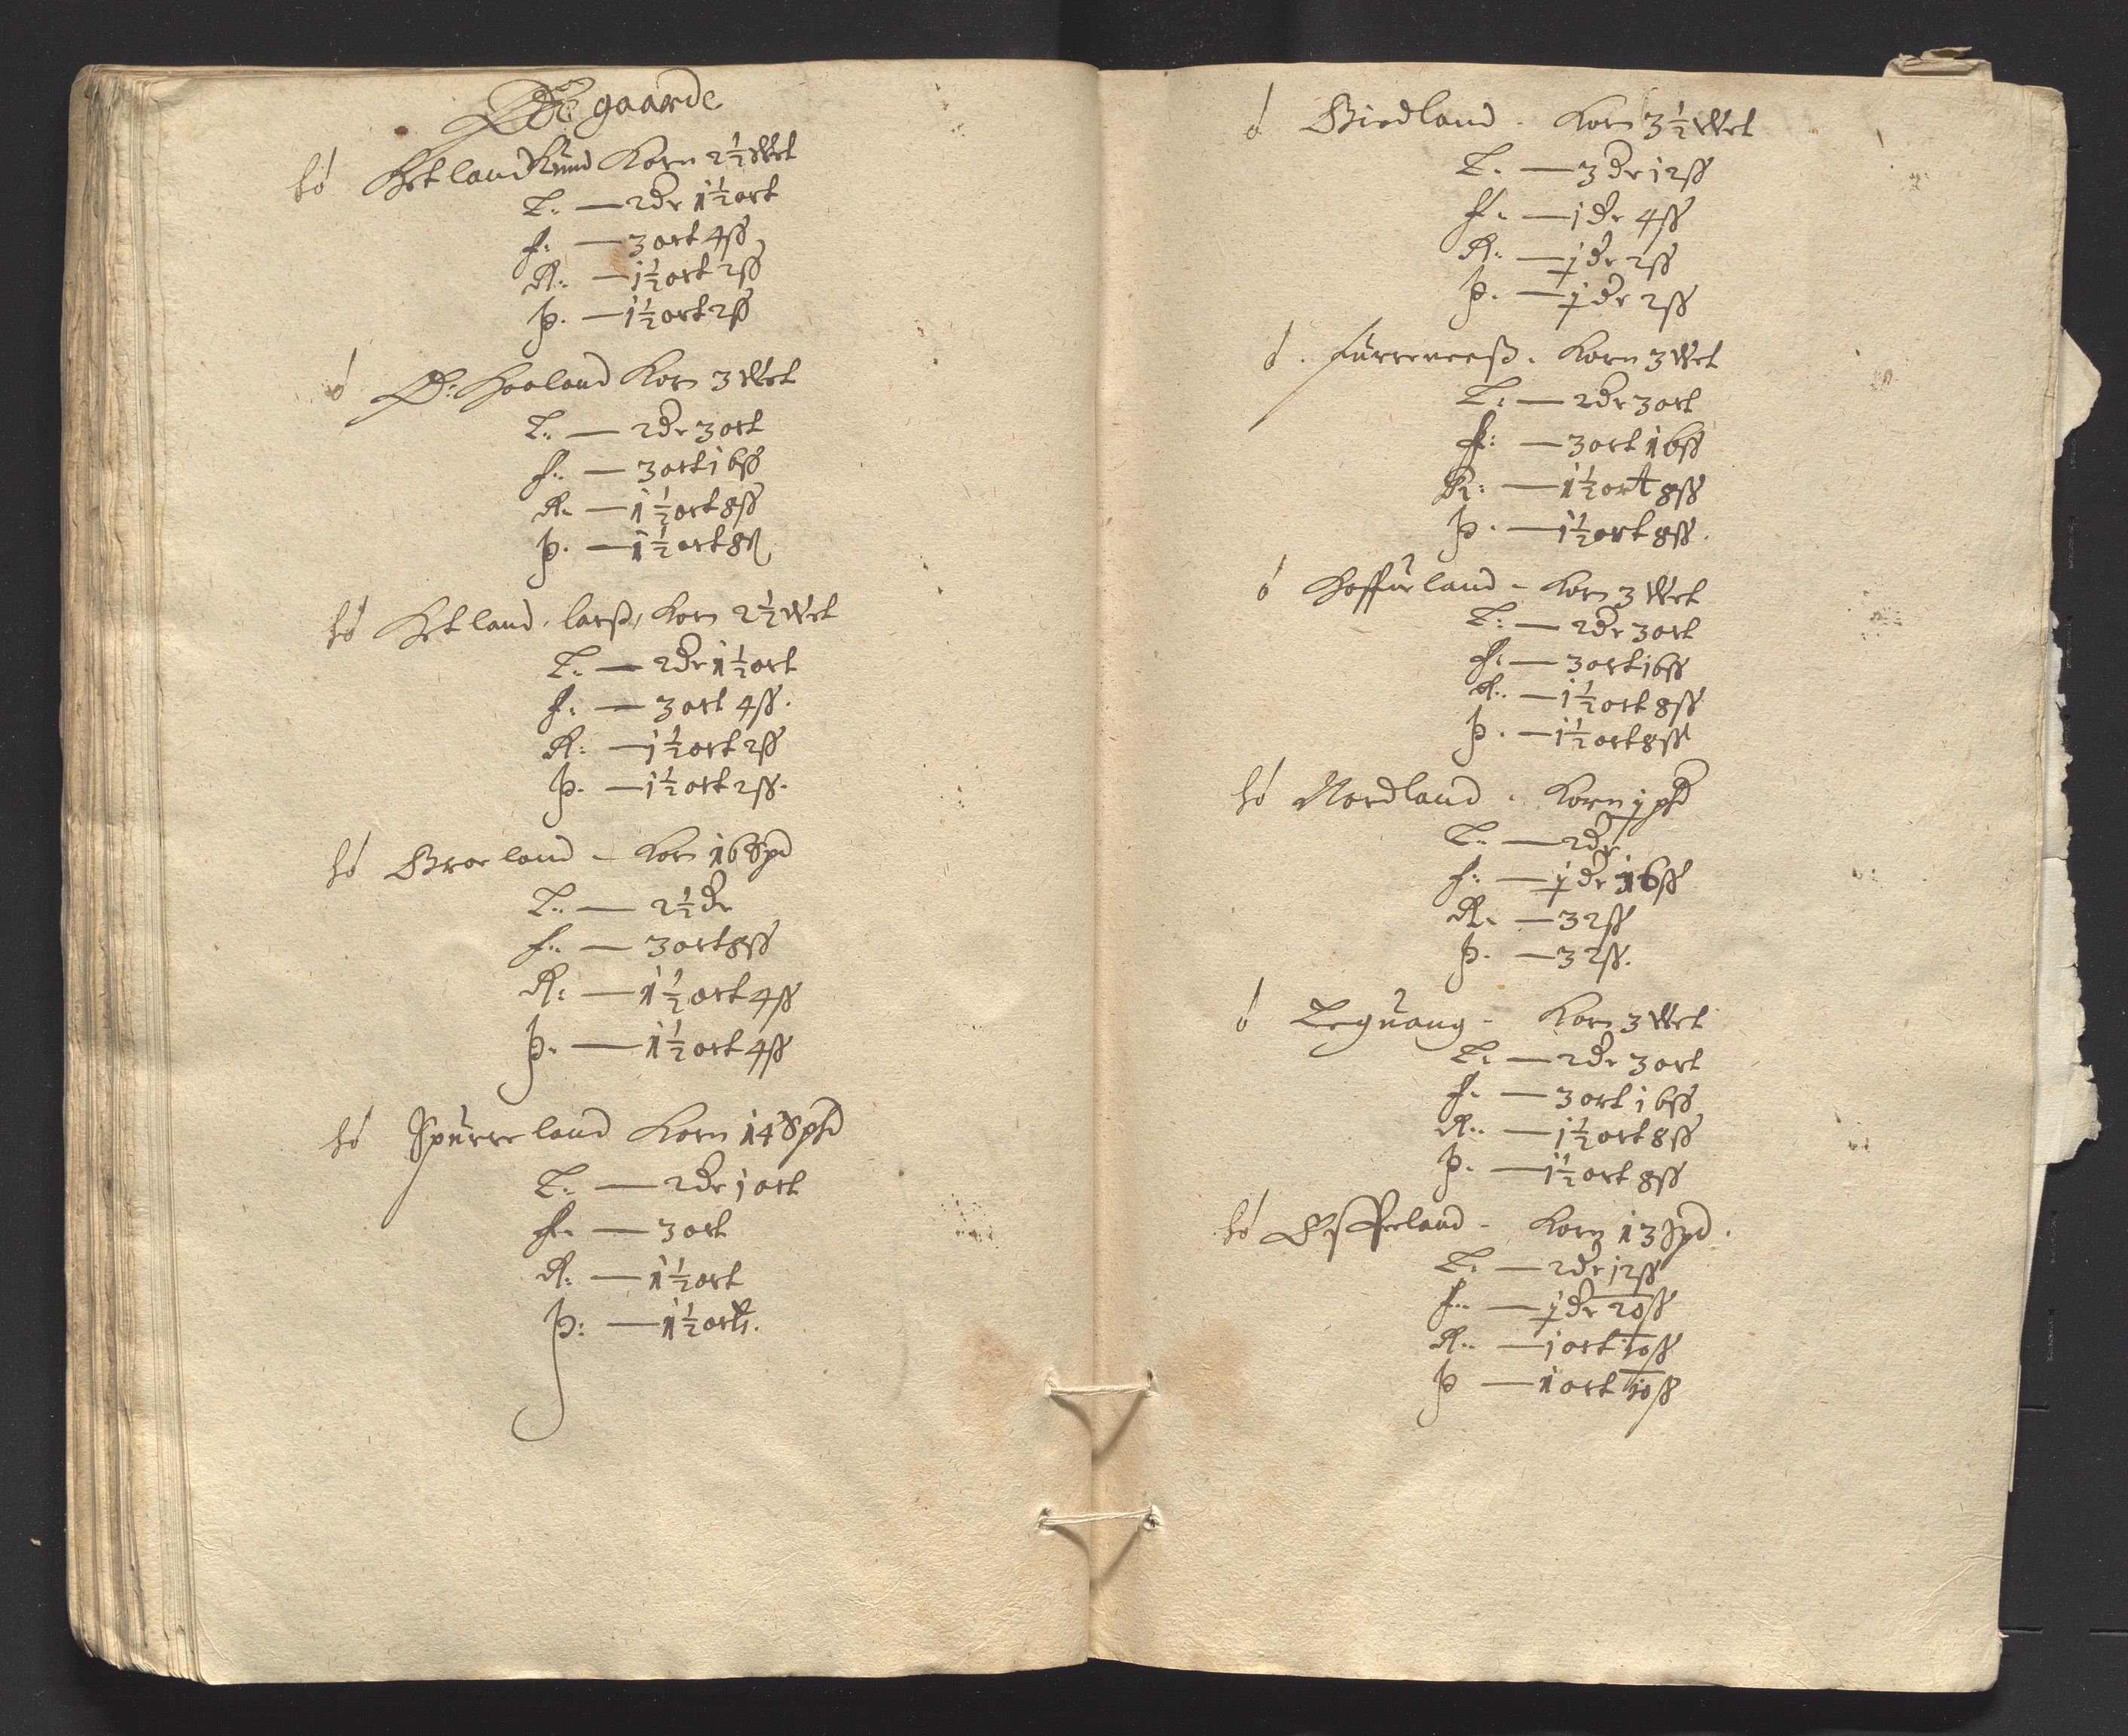 Øde gaarde
hó Hetland Rund Korn 2½ Wet
L. — 2 dr 1½ ort
f: — 3 ort 4 ß
R: — 1½ ort 2 ß
þ. — 1½ ort 2 ß
ó Ø: Haaland Korn 3 Wet
L. — 2 dr 3 ort
f. — 3 ort 16 ß
R. — 1½ ort 8 ß
þ. — 1½ ort 8 ß
hó Hetland, larß, Korn 2½ Wet
L. — 2 dr 1½ ort
f. — 3 ort 4 ß.
R: — 1½ ort 2 ß
þ. — 1½ ort 2 ß.
hó Korn 16 Spd
L. — 2½ dr
f. — 3 ort 8 ß
R: — 1½ ort 4 ß
þ. — 1½ ort 4 ß
hó Spurreland Korn 14 Spd
L. — 2 dr 1 ort
f. — 3 ort
R. — 1½ ort
þ: — 1½ ort.
ó Birdland - Korn 3½ Wet
L. — 3 dr 12 ß
f. — 1 dr 4 ß
R. — ½ dr 2 ß
þ. — ½ dr 2 ß
ó. Furreneeß. Korn 3 Wet
L: — 2 dr 3 ort
f: — 3 ort 16 ß
R: — 1½ ort 8 ß
þ. — 1½ ort 8 ß.
ó Hoffuland - Korn 3 Wet
L: — 2 dr 3 ort
f. — 3 ort 16 ß
R. — 1½ ort 8 ß
þ. — 1½ ort 8 ß
hó Nordland. Korn ½ pd
L. — 2 dr
f: — ½ dr 16 ß
R. — 32 ß
þ. — 32 ß.
ó Leguang - Korn 3 Wet
L. — 2 dr 3 ort
f. — 3 ort 16 ß
R. — 1½ ort 8 ß
þ. — 1½ ort 8 ß
hó Korn 13 Spd.
L. — 2 dr 12 ß
f. — ½ dr 20 ß
R. — 1 ort 10 ß
þ — 1 ort 10 ß